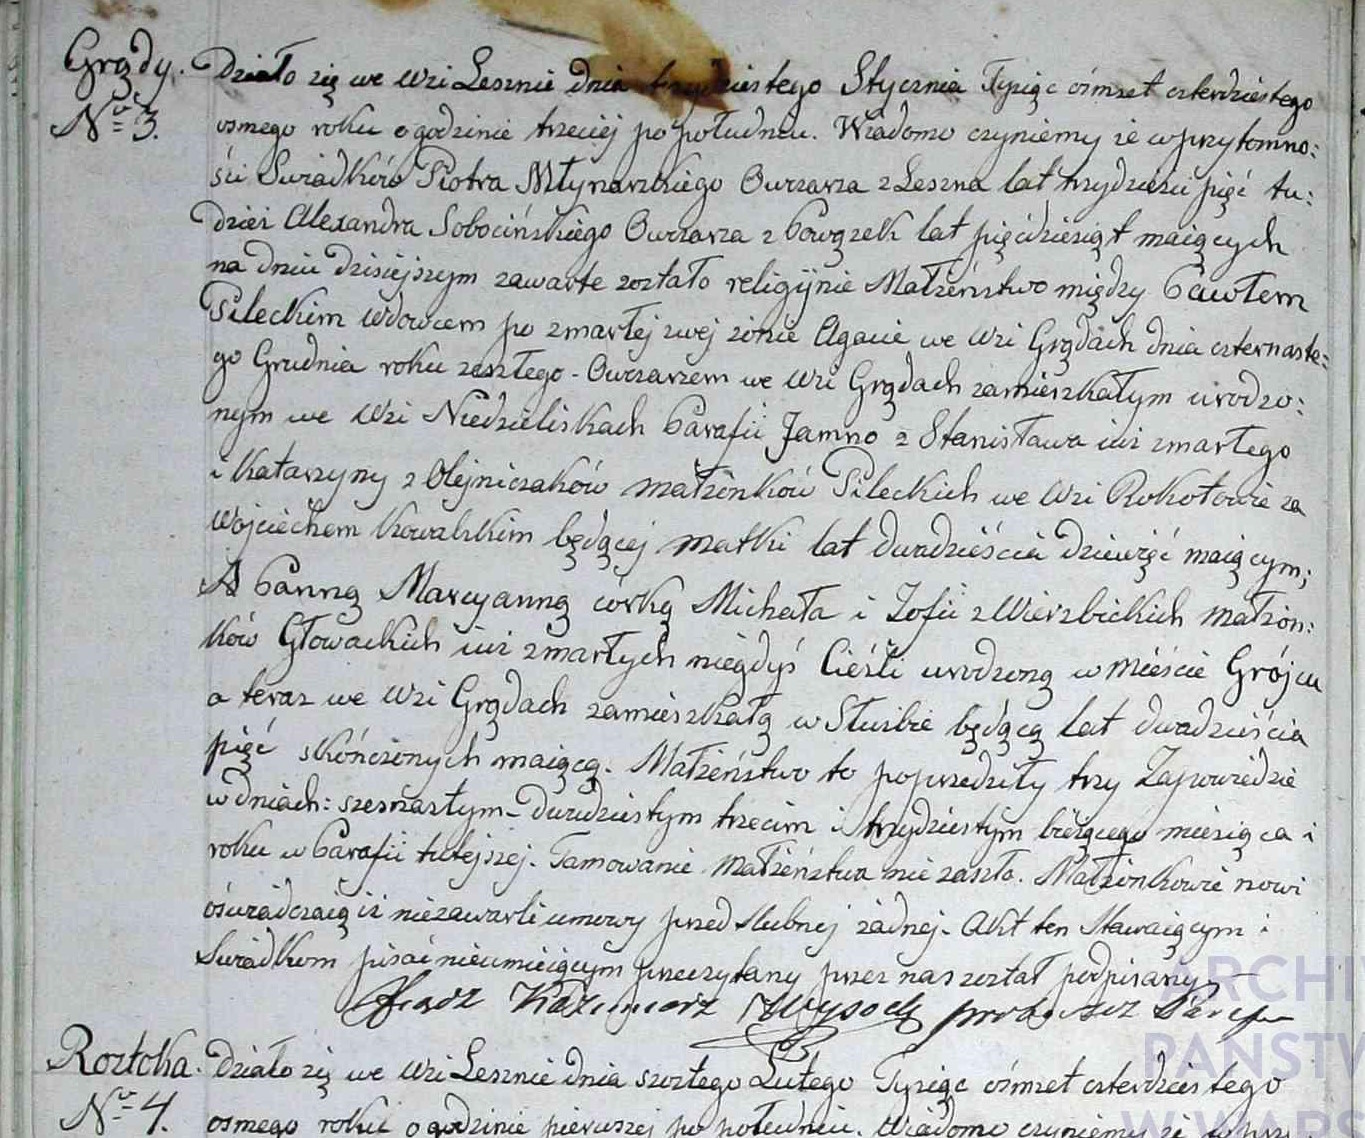 Grądy.
Nro 3.
Działo się we Wsi Lesznie dnia trzydziestego Stycznia Tysiąc ośmset czterdziestego
osmego roku o godzinie trzeciej po południu. Wiadomo czyniemy że w przytomno:
ści Swiadków Piotra Młynarskiego Owczarza z Leszna lat trzydzieści pięć tu:
dzież Alexandra Sobocińskiego Owczarza z Powązek lat pięćdziesiąt maiących
na dniu dzisiejszym zawarte zostało religijnie Małżeństwo między Pawłem
Pileckim Wdowcem po zmarłej swej żonie Agacie we Wsi Grądach dnia czternaste=
go Grudnia roku zeszłego - Owczarzem we Wsi Grądach zamieszkałym urodzo:
nym we Wsi Niedzieliskach Parafii Jamno z Stanisława iuż zmarłego
i Katarzyny z Olejniczaków małżonków Pileckich we Wsi Rokotowie za
Wojciechem Kowalskim będącej matki lat dwadzieścia dziewięć maiącym;
A Panną Maryanną córką Michała i Zofii z Wierzbickich małżon:
ków Głowackich iuż zmarłych niegdyś Cieśli urodzoną w mieście Grójcu
a teraz we Wsi Grądach zamieszkałą w Służbie będącą lat dwadzieścia
pięć skończonych maiącą. Małżeństwo to poprzedziły trzy Zapowiedzie
w dniach: szesnastym - dwudziestym trzecim i trzydziestym bieżącego miesiąca i
roku w Parafii tutejszej. Tamowanie Małżeństwa nie zaszło. Małżonkowie nowi
oświadczaią iż niezawarli umowy przed ślubnej żadnej. Akt ten Stawaiącym i
Swiadkom pisać nieumieiącym przeczytany przez nas został podpisany.
Xiądz Kazimierz Wysocki proboszcz
Roztoka.
Nro 4.
Działo się we Wsi Lesznie dnia szóstego Lutego Tysiąc ośmset czterdziestego
osmego roku o godzinie pierwszej po południu. Wiadomo czyniemy że w przy
ARCHI
PAŃSTW
W WARS